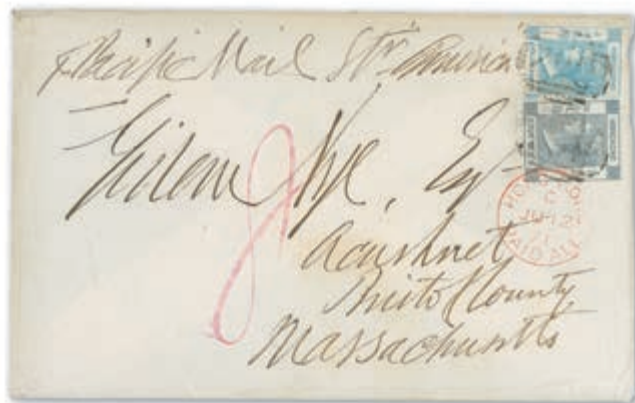 p Pacific Mail Str America
Gideon Nye, Esqr
Acushnet
Bristol County
Massachusetts
8
HONG KONG
C
JU 12
71
PAID ALL